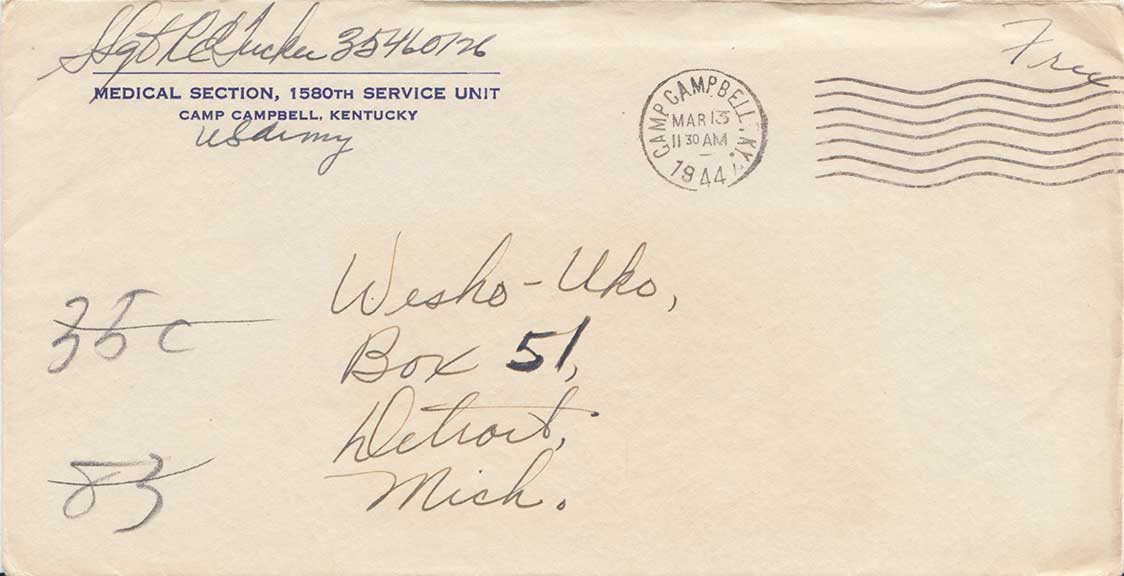 SSgt R C Tucker 35460126
MEDICAL SECTION, 1580TH SERVICE UNIT
CAMP CAMPBELL, KENTUCKY
US Army
Free
CAMP CAMPBELL, KY.
MAR 13
11 30 AM
1944
Wesho-Uko,
Box 51,
Detroit,
Mich.
35c
83